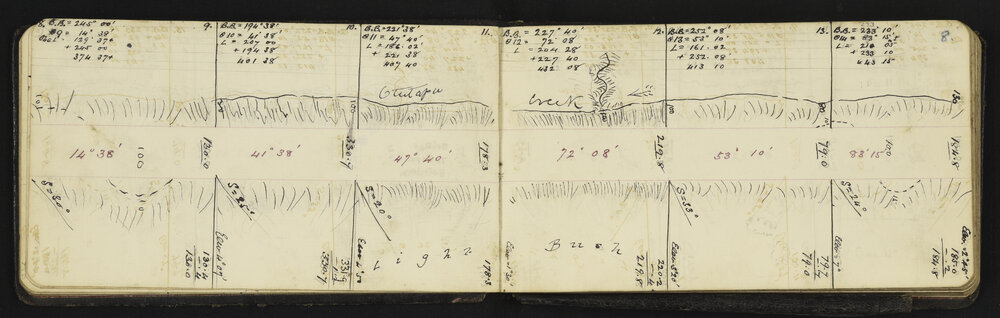 8. B.B. = 245° 00'
θ9 = 14° 38'
+ 245 00
374 37+
9.
B.B. = 194° 38'
θ10 = 41° 38'
L = 207 00
+ 194 38
401 38
10.
B.B. = 221° 38'
θ11 = 47° 40'
L = 186. 02
+ 221 38
407 40
11.
B.B. = 227° 40'
θ12 = 72 08
L = 204 28
+ 227 40
432 08
12.
B.B. = 252° 08'
θ13 = 53° 10'
L = 161. 02
+ 252. 08
413 10
13.
B.B. = 233 10'
L = 210 05
+ 233 10
443 15
8
Otutapu
Creek
100
100
100
130
14° 38'
100
130.0
41° 38'
330.7
47° 40'
178.3
72° 08'
219.8
53° 10'
79.0
83° 15'
100
184.8
S = 30°
S = 25°
S = 20°
S = 33°
S = 24°
Elev 4° 07'
130.4
130.0
Elev 4° 50'
331.9
330.7
Light
178.3
Bush
220.2
.4
219.8
Elev 3° 20'
79.7
.7
79.0
Elev. +2° 45'
185.0
.2
184.8